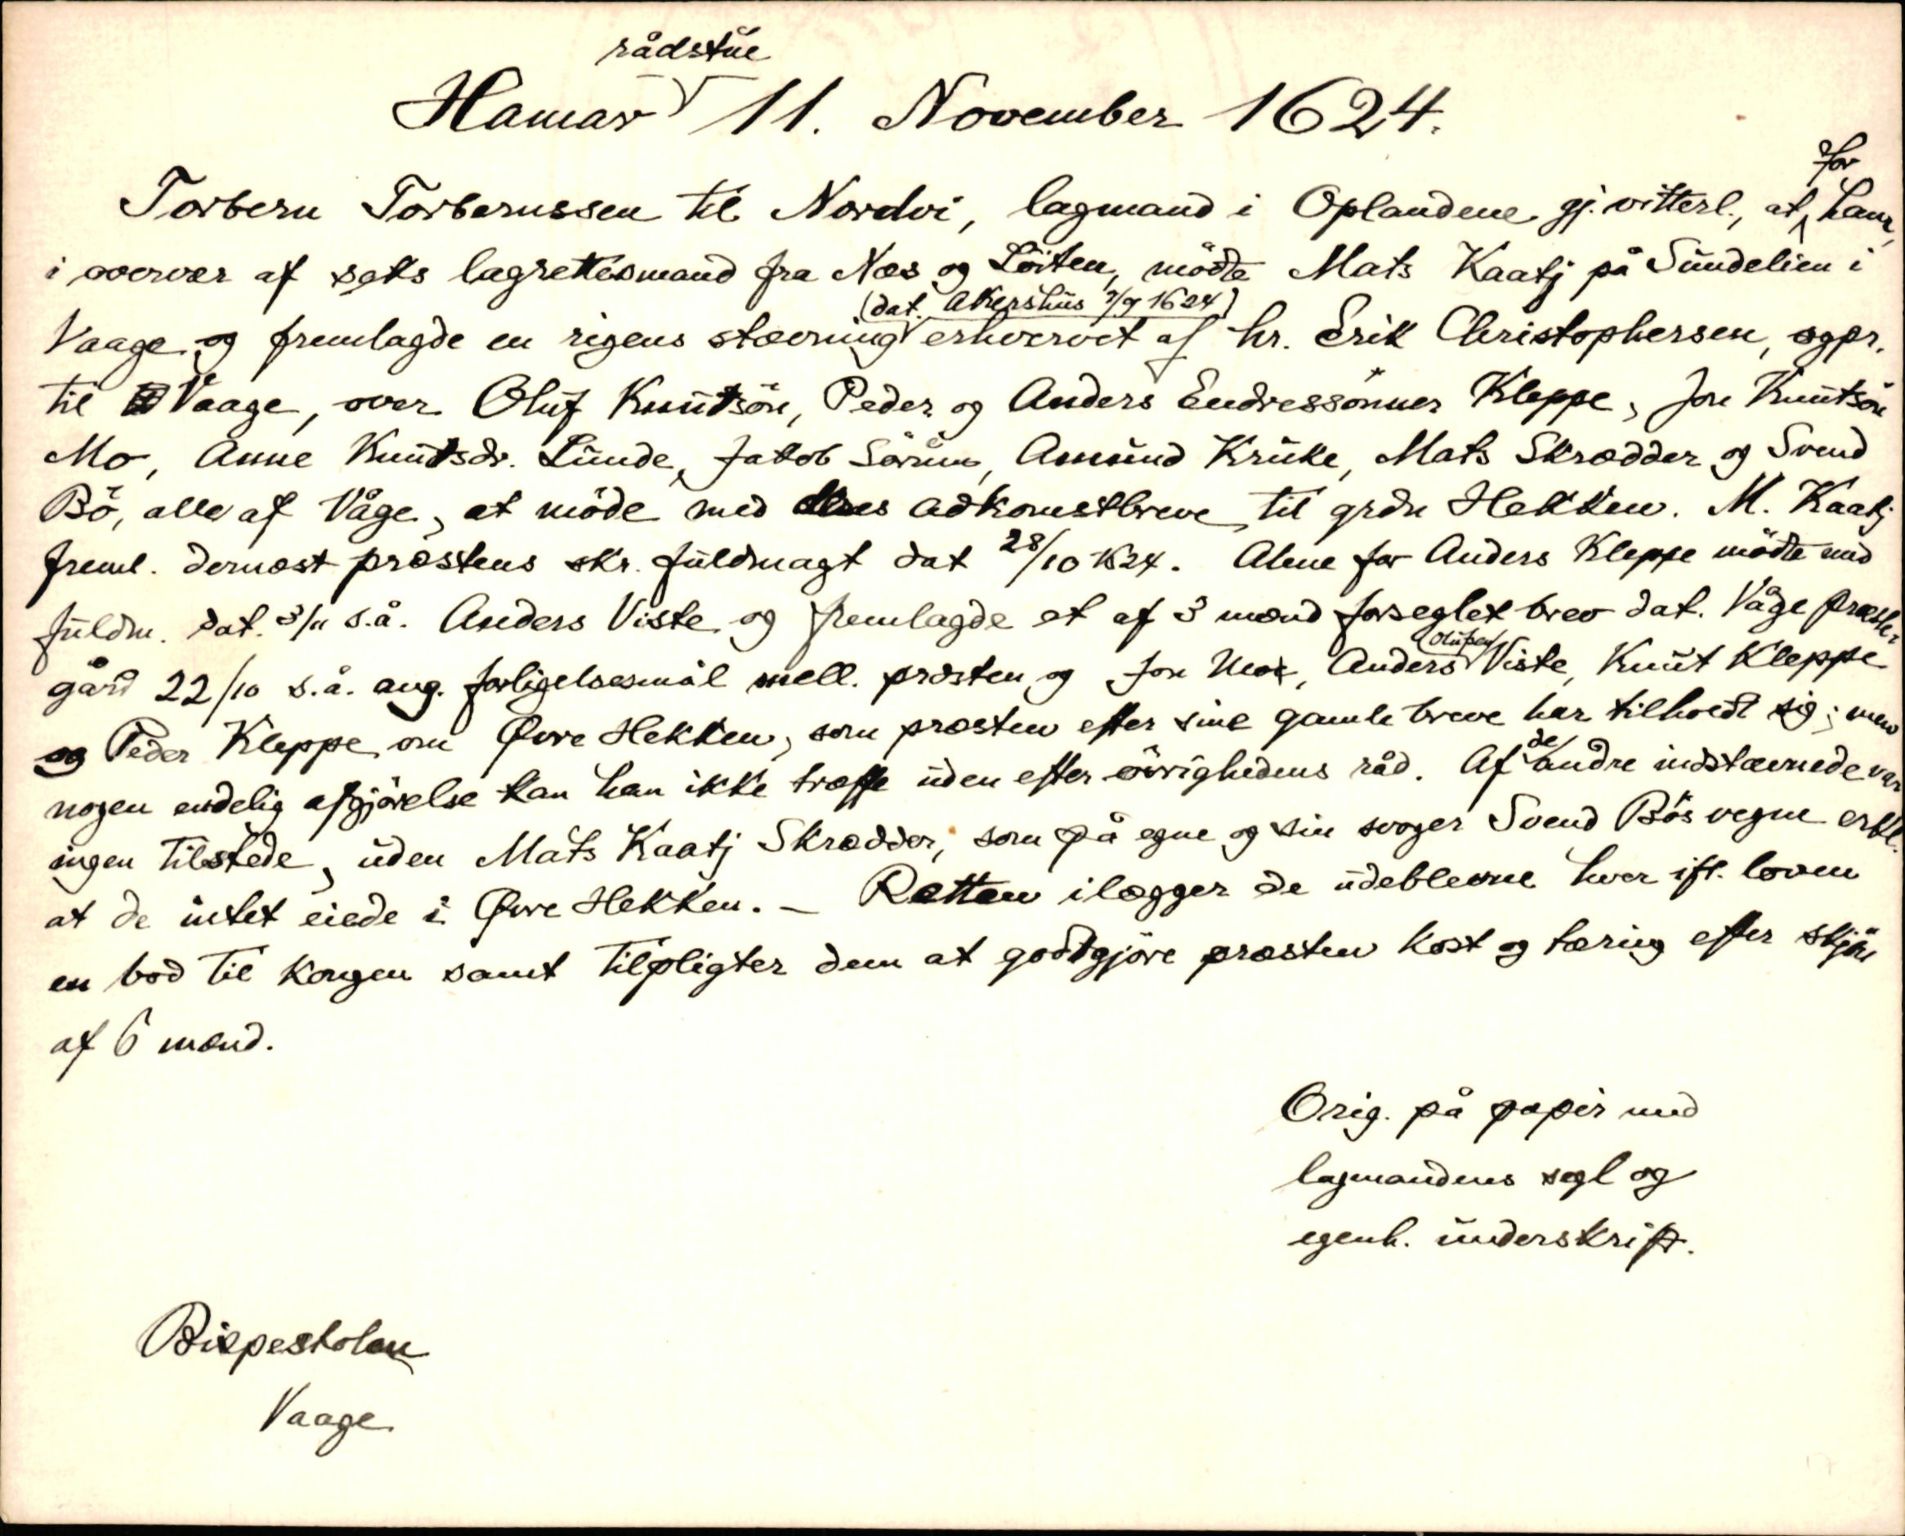 rådstue
Hamar 11. November 1624.
for
Torbern Torbernssen til Nordvi, lagmand i Oplandene gj. vitterl., at ham,
i overvær af seks lagrettesmænd fra Næs og Löiten, mödte Mats Kaatj på Sundelien i
(dat. Akershus 7/9 1624)
Vaage og fremlagde en rigens stævning erhvervet af hr. Erik Christophersen, sgpr.
til Vaage, over Oluf Knutsön, Peder og Anders Endressönner Kleppe, Jon Knutsön
Mo, Anne Knutsdr. Lunde, Jakob Sörum, Amund Kruke, Mats Skrædder og Svend
Bö, alle af Våge, at möde med deres adkomstbreve til grdn Hekken. M. Kaatj
freml. dernæst præstens skr. fuldmagt dat 28/10 1624. Alene for Anders Kleppe mödte med
fuldm. dat. 3/11 s.å. Anders Viste og fremlagde et af 3 mænd forseglet brev dat. Våge præste-
Olufsen
gård 22/10 s.å. ang. forligelsesmål mell. præsten og Jon Mo, Anders Viste, Knut Kleppe
og Peder Kleppe om Øvre Hekken, som præsten efter sine gamle breve har tilholdt sig; men
de
nogen endelig afgjörelse kan han ikke træffe uden efter övrighedens råd. Af andre indstævnede var
ingen tilstede, uden Mats Kaatj Skrædder, som på egne og sin svoger Svend Bös vegne erkl.
at de intet eiede i Øvre Hekken. – Retten ilægger de udeblevne hver ift. loven
en bod til kongen samt tilpligter dem at godtgjöre præsten kost og tæring efter skjön
af 6 mænd.
Orig. på papir med
lagmandens segl og
egenh. underskrift.
Bispestolen
Vaage